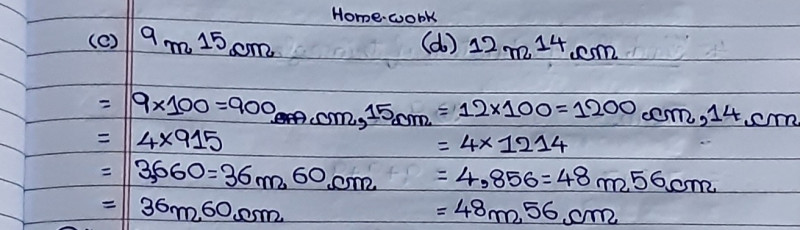 Home.work
(c) 9 m 15 cm (d) 12 m 14 cm
= 9×100=900 cm, 15 cm = 12×100=1200 cm, 14 cm
= 4×915 = 4×1214
= 3,660=36m 60 cm = 4,856=48m 56 cm
= 36m 60 cm =48m 56 cm